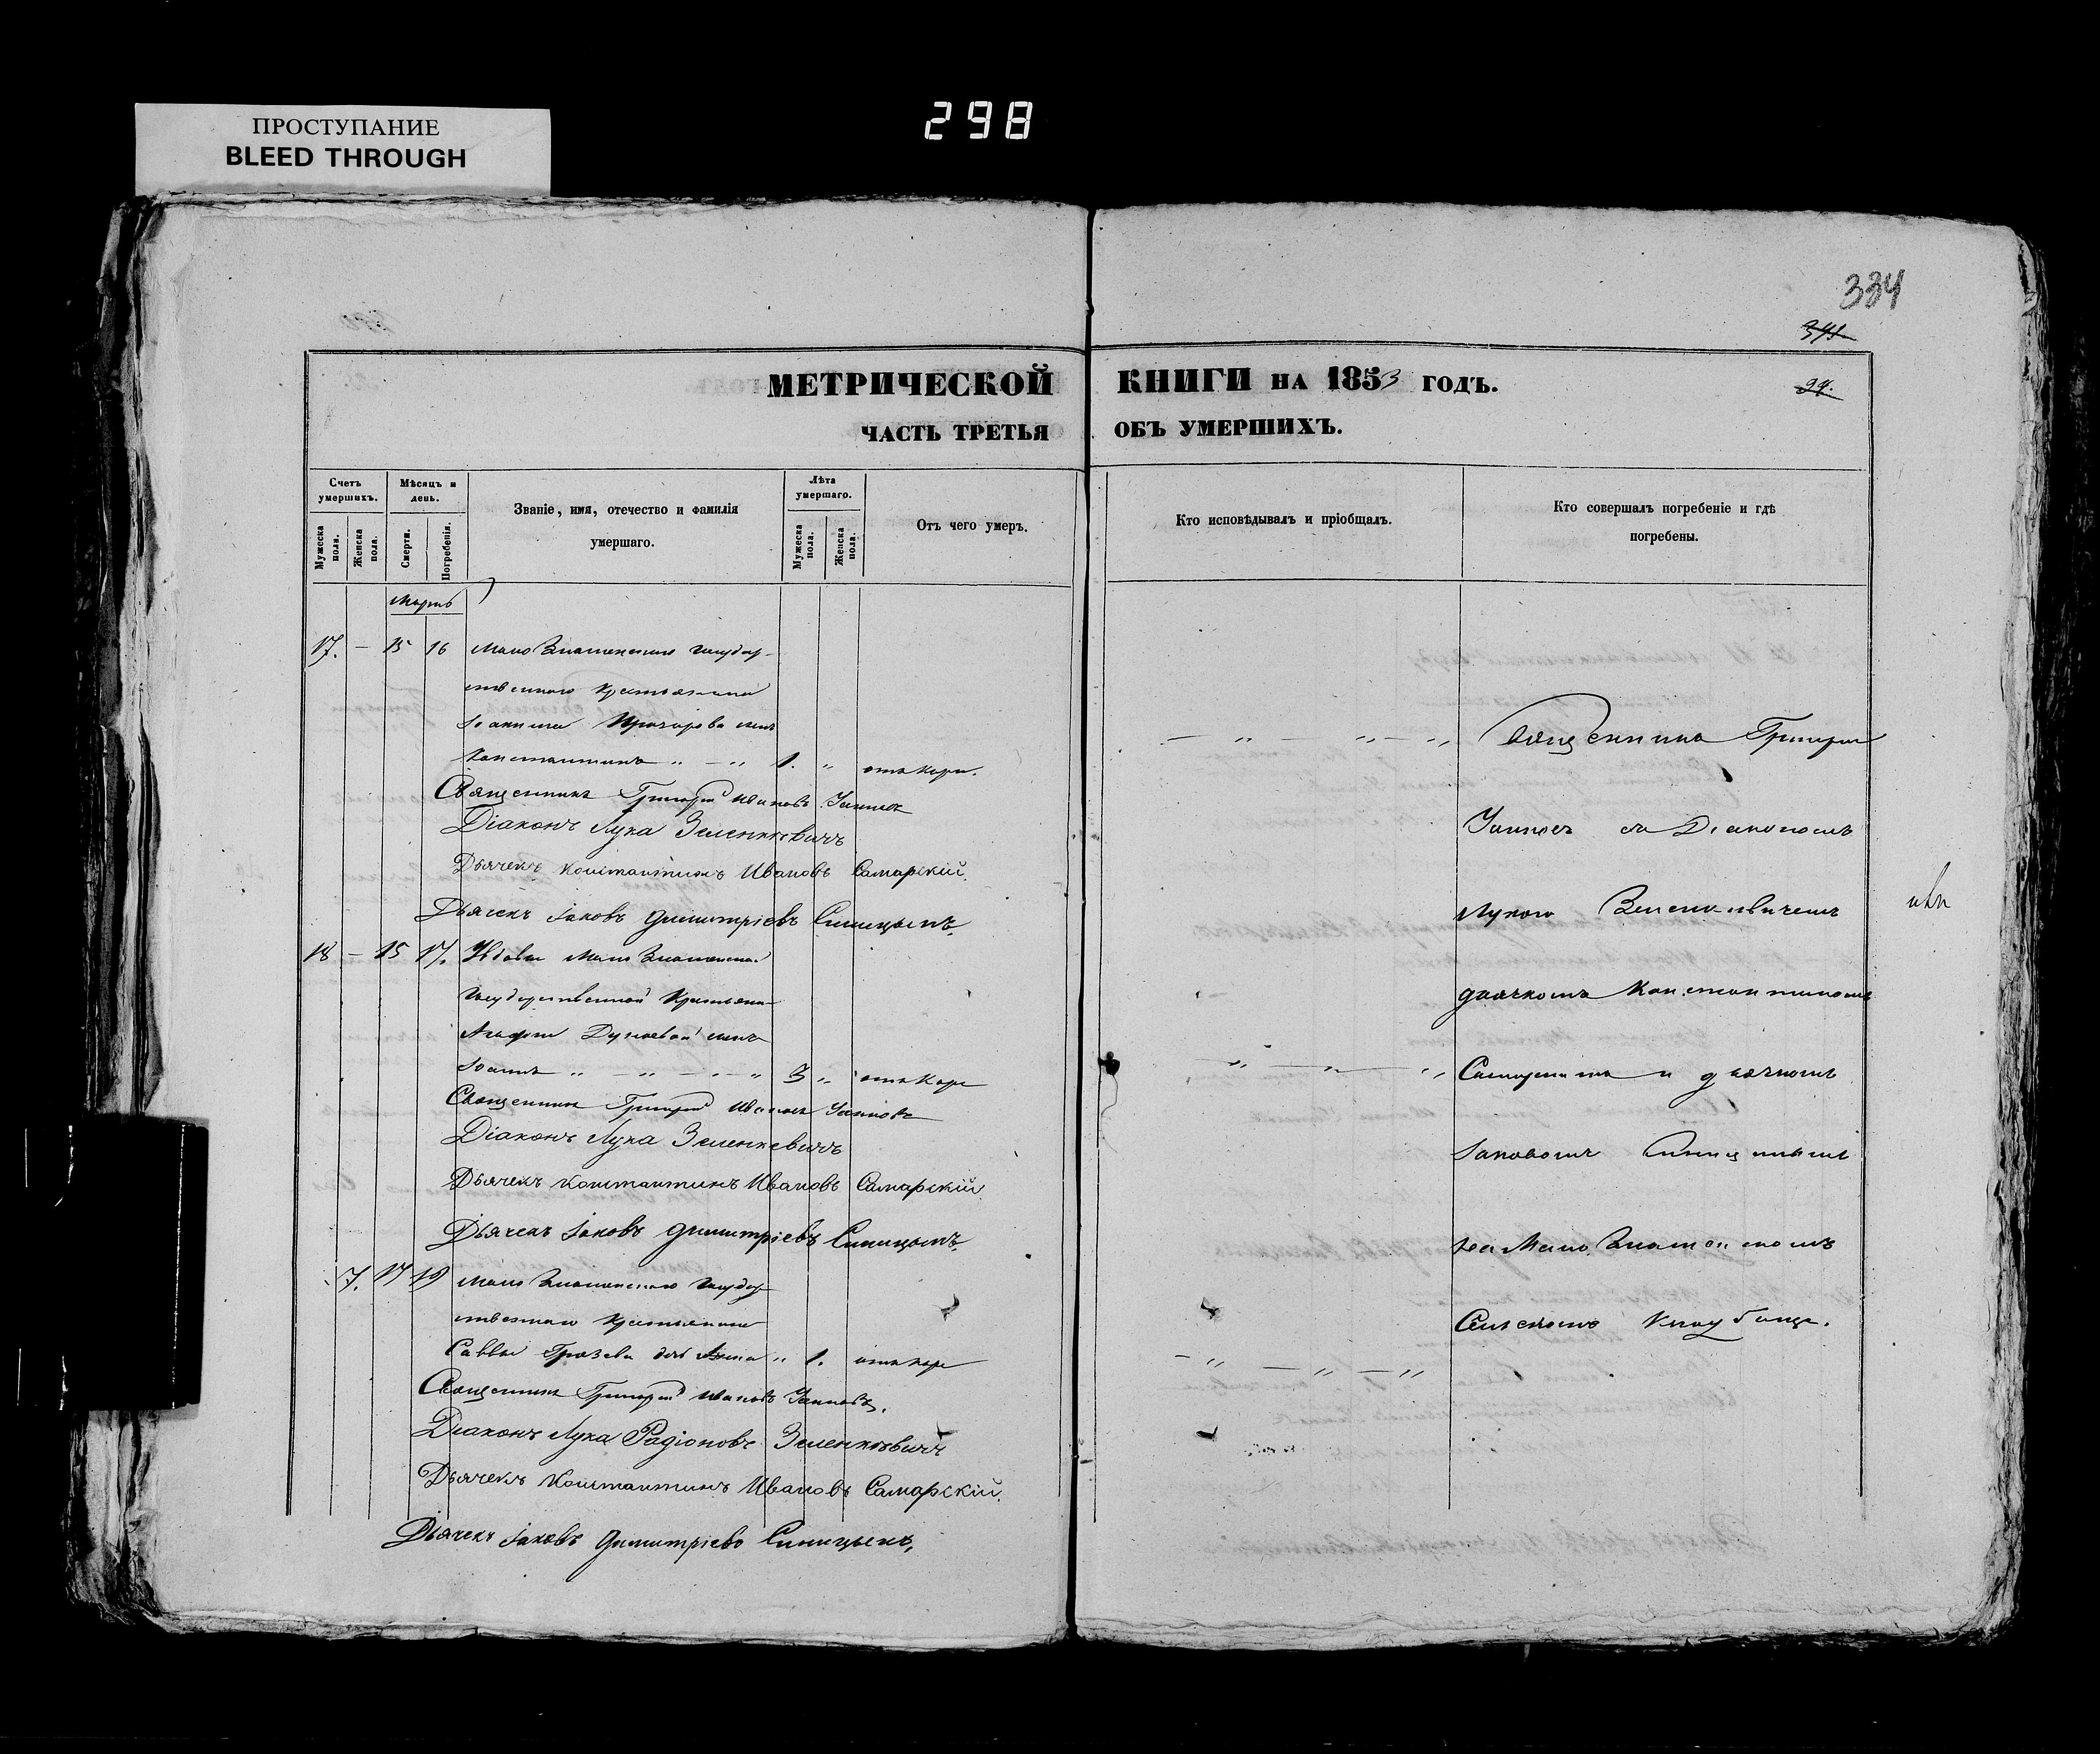 ПРОСТУПАНИЕ
BLEED THROUGH
298
334
МЕТРИЧЕСКОЙ КНИГИ НА 1853 ГОДЪ.
ЧАСТЬ ТРЕТЬЯ ОБЪ УМЕРШИХЪ.
Счетъ умершихъ.
Мужеска пола.
Женска пола.
Мѣсяцъ и день.
Смерти.
Погребенія.
Званіе, имя, отечество и фамилія умершаго.
Лѣта умершаго.
Мужеска пола.
Женска пола.
Отъ чего умеръ.
Кто исповѣдывалъ и пріобщалъ.
Кто совершалъ погребеніе и гдѣ погребены.
Мартъ
17. — 15 16 Мало Знаменскаго государ-
ственнаго крестьянина
Іоакима сынъ
Константинъ 1. " отъ кори.
Священникъ Григорій Ивановъ
Діаконъ Лука Зеленкевичъ
Дьячекъ Константинъ Ивановъ Самарскій.
Дьячекъ Іаковъ Димитріевъ Синицынъ.
18 — 15 17. Вдовы Мало Знаменской
государственной крестьянки
сынъ
Іоаннъ 3 " отъ кори
Священникъ Григорій Ивановъ
Діаконъ Лука Зеленкевичъ
Дьячекъ Константинъ Ивановъ Самарскій.
Дьячекъ Іаковъ Димитріевъ Синицынъ.
7. 17 19 Мало Знаменскаго государ-
ственнаго крестьянина
Саввы дочь Анна " 1. отъ кори
Священникъ Григорій Ивановъ
Діаконъ Лука Радіоновъ Зеленкевичъ
Дьячекъ Константинъ Ивановъ Самарскій.
Дьячекъ Іаковъ Димитріевъ Синицынъ.
Священникъ Григорій
съ Діакономъ
Лукою Зеленкевичемъ
дьячкомъ Константиномъ
Самарскимъ и дьячкомъ
Іаковомъ Синицынымъ
на Мало Знаменскомъ
Сельскомъ кладбищѣ.